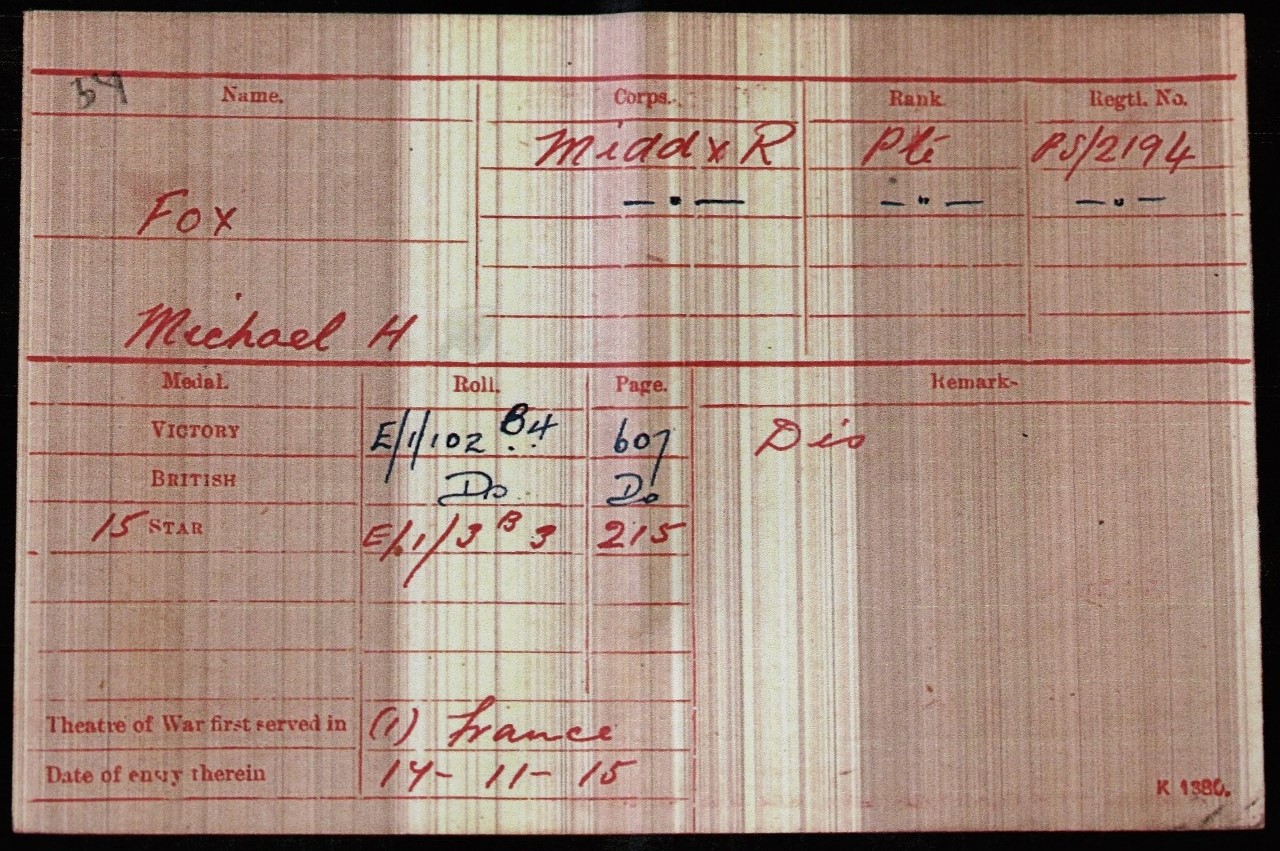 Name. Corps. Rank. Regtl. No.
Middx R Pte PS/2194
Fox —"— —"— —"—
Michael H
Medal. Roll. Page. Remarks
VICTORY E/1/102 B4 607 Dis
BRITISH Do Do
15 STAR E/1/3 B 3 215
Theatre of War first served in (1) France
Date of entry therein 14- 11- 15
K 1380.